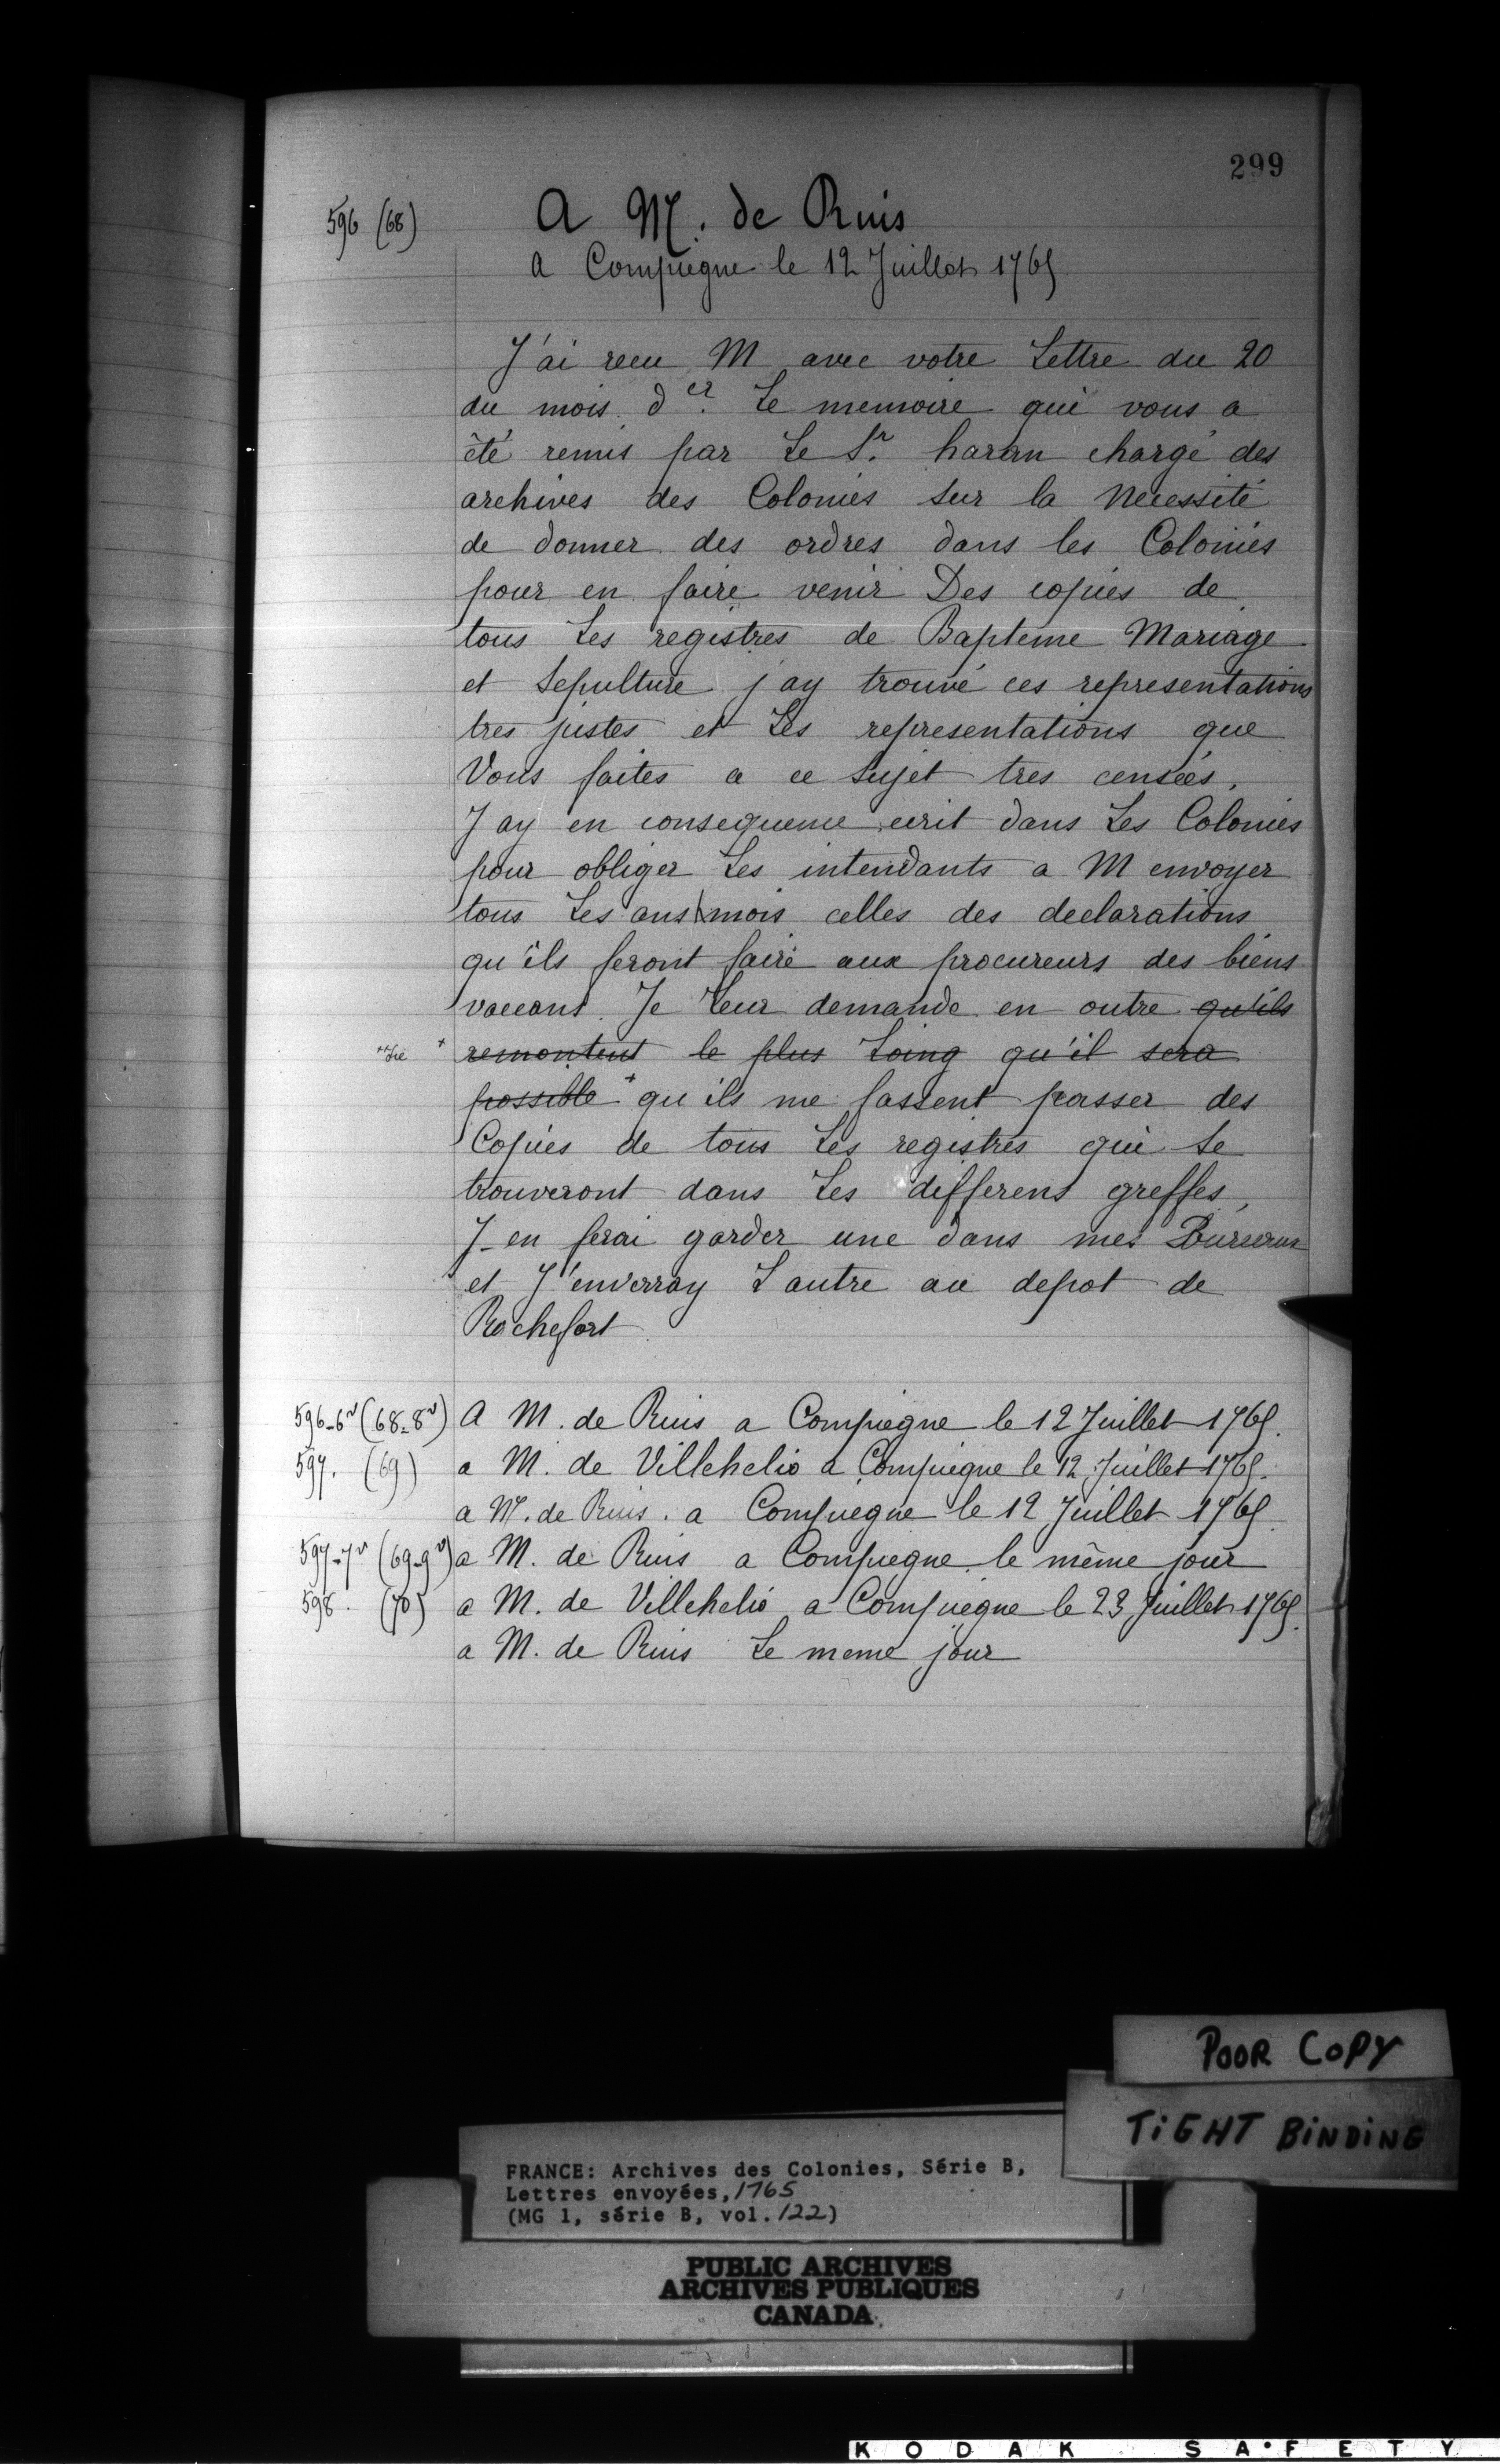 299
596 (68) A M. de Ruis
a Compiegne le 12 Juillet 1765
J'ai recu M avec votre Lettre du 20
du mois der. Le memoire qui vous a
êté remis par Le Sr. haran chargé des
archives des Colonies sur la Necessité
de donner des ordres dans les Colonies
pour en faire venir Des copies de
tous Les registres de Bapteme Mariage
et Sepulture j'ay trouvé ces representations
tres justes et Les representations que
Vous faites a ce Sujet tres censées.
J ay en consequence ecrit dans Les Colonies
pour obliger Les intendants a M envoyer
tous Les ans mois celles des declarations
qu'ils feront faire aux procureurs des biens
vaccans. Je Leur demande en outre qu'ils
+ remontent le plus Loing qu'il sera
possible + qu ils me fassent passer des
Copies de tous Les registres qui Se
trouveront dans Les differens greffes,
J-en ferai garder une dans mes Bureaux
et J'enverray L autre au depot de
Rochefort
596-6v (68-8v) A M. de Ruis a Compiegne le 12 Juillet 1765.
597. (69) a M. de Villehelio a Compiegne le 12 Juillet 1765.
a M. de Ruis. a Compiegne le 12 Juillet 1765
597-7v (69-9v) a M. de Ruis a Compiegne le même jour
598. (70) a M. de Villehelio a Compiegne le 23 Juillet 1765.
a M. de Ruis Le meme jour
POOR COPY
TIGHT BINDING
FRANCE: Archives des Colonies, Série B,
Lettres envoyées, 1765
(MG 1, série B, vol. 122)
PUBLIC ARCHIVES
ARCHIVES PUBLIQUES
CANADA
KODAK SAFETY